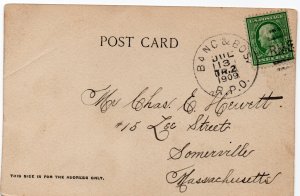 POST CARD
B & N C & BOS
JUL
13
TR. 2
1909
R.P.O.
Mr Chas. E. Hewett
#15 Lee Street
Somerville
Massachusetts
THIS SIDE IS FOR THE ADDRESS ONLY.